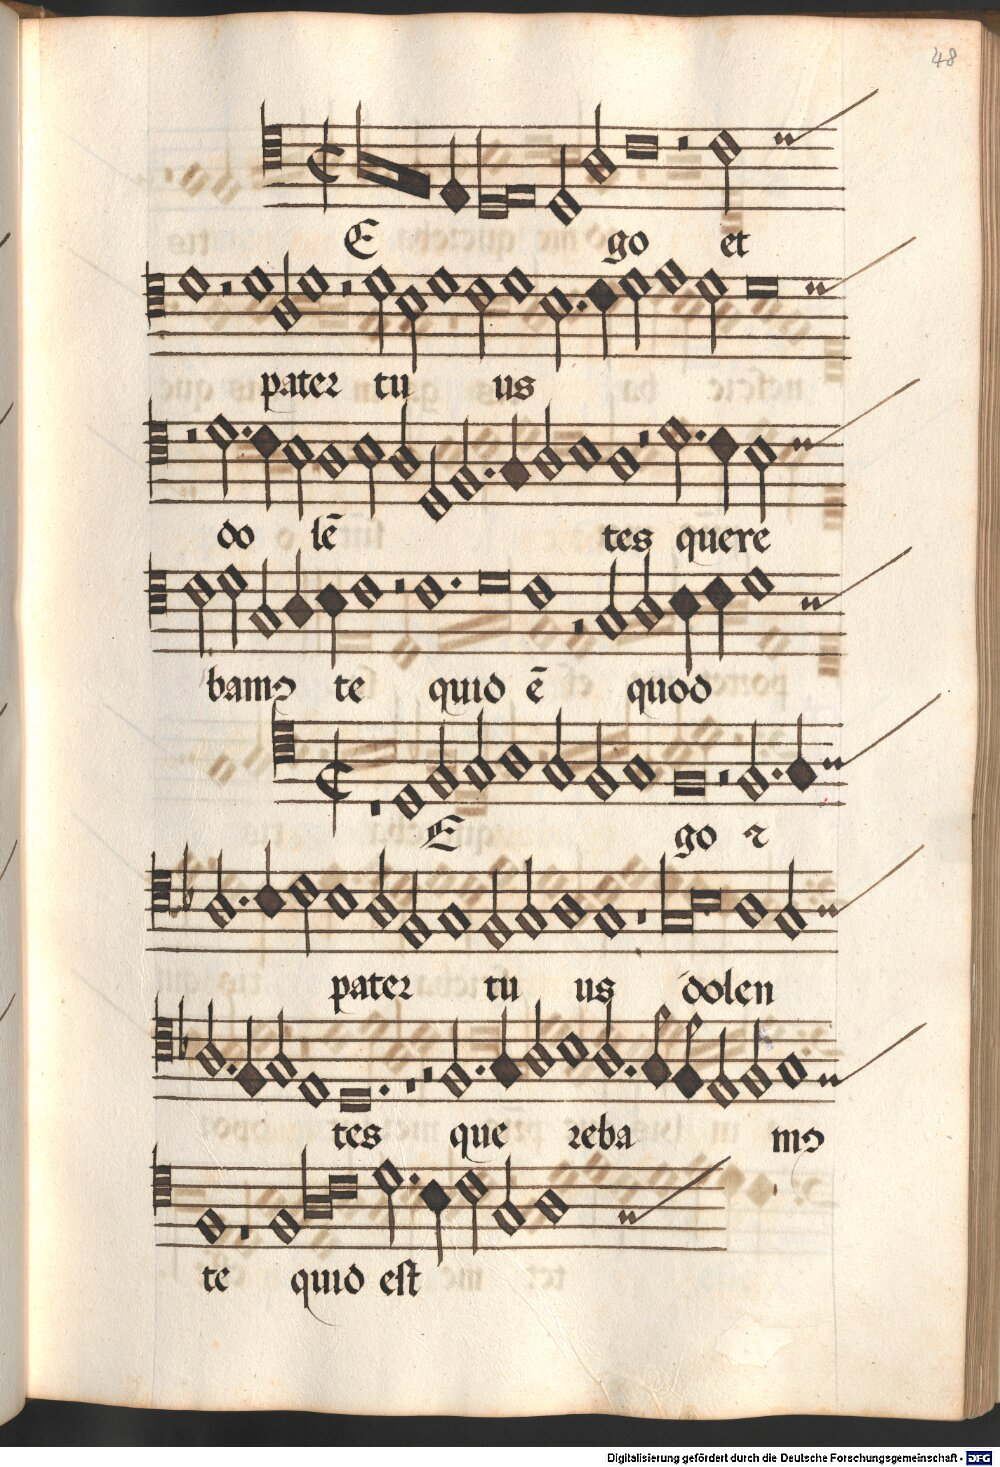 48
E go et
pater tu us
do lē tes quere
bamꝰ te quid ē quod
E go ⁊
pater tu us dolen
tes que reba mꝰ
te quid est
Digitalisierung gefördert durch die Deutsche Forschungsgemeinschaft - DFG